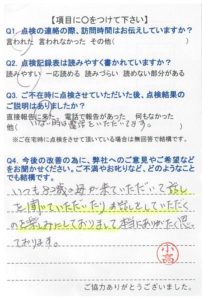 【項目に○をつけて下さい】
Q1. 点検の連絡の際、訪問時間はお伝えしていますか？
言われた 言われなかった その他（ ）
Q2. 点検記録表は読みやすく書かれていますか？
読みやすい 一応読める 読みづらい 読めない部分がある
Q3. ご不在時に点検させていただいた後、点検結果の
ご説明はありましたか？
直接報告に来た 電話で報告があった 何もなかった
他（ ）
※ご在宅時に点検をさせて頂いている場合は無回答で結構です。
Q4. 今後の改善の為に、弊社へのご意見やご希望など
をお聞かせください。ご不満やお叱りなど、どのようなこと
でも結構です。
いつも83歳の母が来ていただいて話し
を聞いていただいたりお話をしていただく
のを楽しみにしておりまして本当にありがたく思っ
ております。
小高
ご協力ありがとうございました。